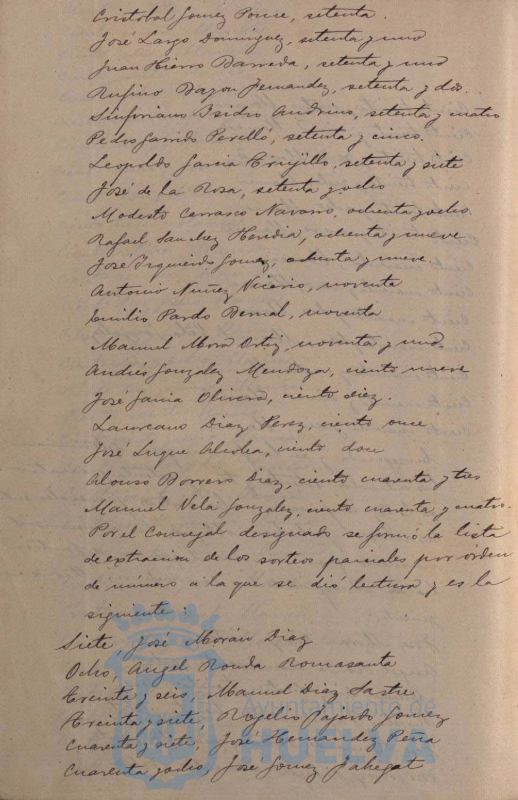 Cristobal Gomez Ponce, setenta.
José Largo Dominguez, setenta y uno
Juan Hierro Barreda, setenta y uno
Rufino Bazon Fernandez, setenta y dos.
Sinforiano Isidro Andrino, setenta y cuatro
Pedro Garrido Perelló, setenta y cinco.
Leopoldo Garcia Trujillo, setenta y siete
José de la Rosa, setenta y ocho
Modesto Carrasco Navarro, ochenta y ocho.
Rafael Sanchez Heridia, ochenta y nueve
José Izquierdo Gomez, ochenta y nueve.
Antonio Nuñez Vicario, noventa
Emilio Pardo Bernal, noventa
Manuel Mora Ortiz, noventa y uno
Andrés Gonzalez Mendoza, ciento nueve
José Garcia Olivera, ciento diez.
Laureano Diaz Perez, ciento once
José Luque, ciento doce
Alonso Borrero Diaz, ciento cuarenta y tres
Manuel Vela Gonzalez, ciento cuarenta y cuatro.
Por el Concejal designado se formó la lista
de extraccion de los sorteos parciales por orden
de número a la que se dió lectura y es la
siguiente:
Siete, José Morán Diaz
Ocho, Angel Ronda Romasanta
Treinta y seis, Manuel Diaz Sastre
Treinta y siete, Rogelio Fajardo Gomez
Cuarenta y siete, José Hernandez Peña
Cuarenta y ocho, José Gomez
Ayuntamiento de
HUELVA